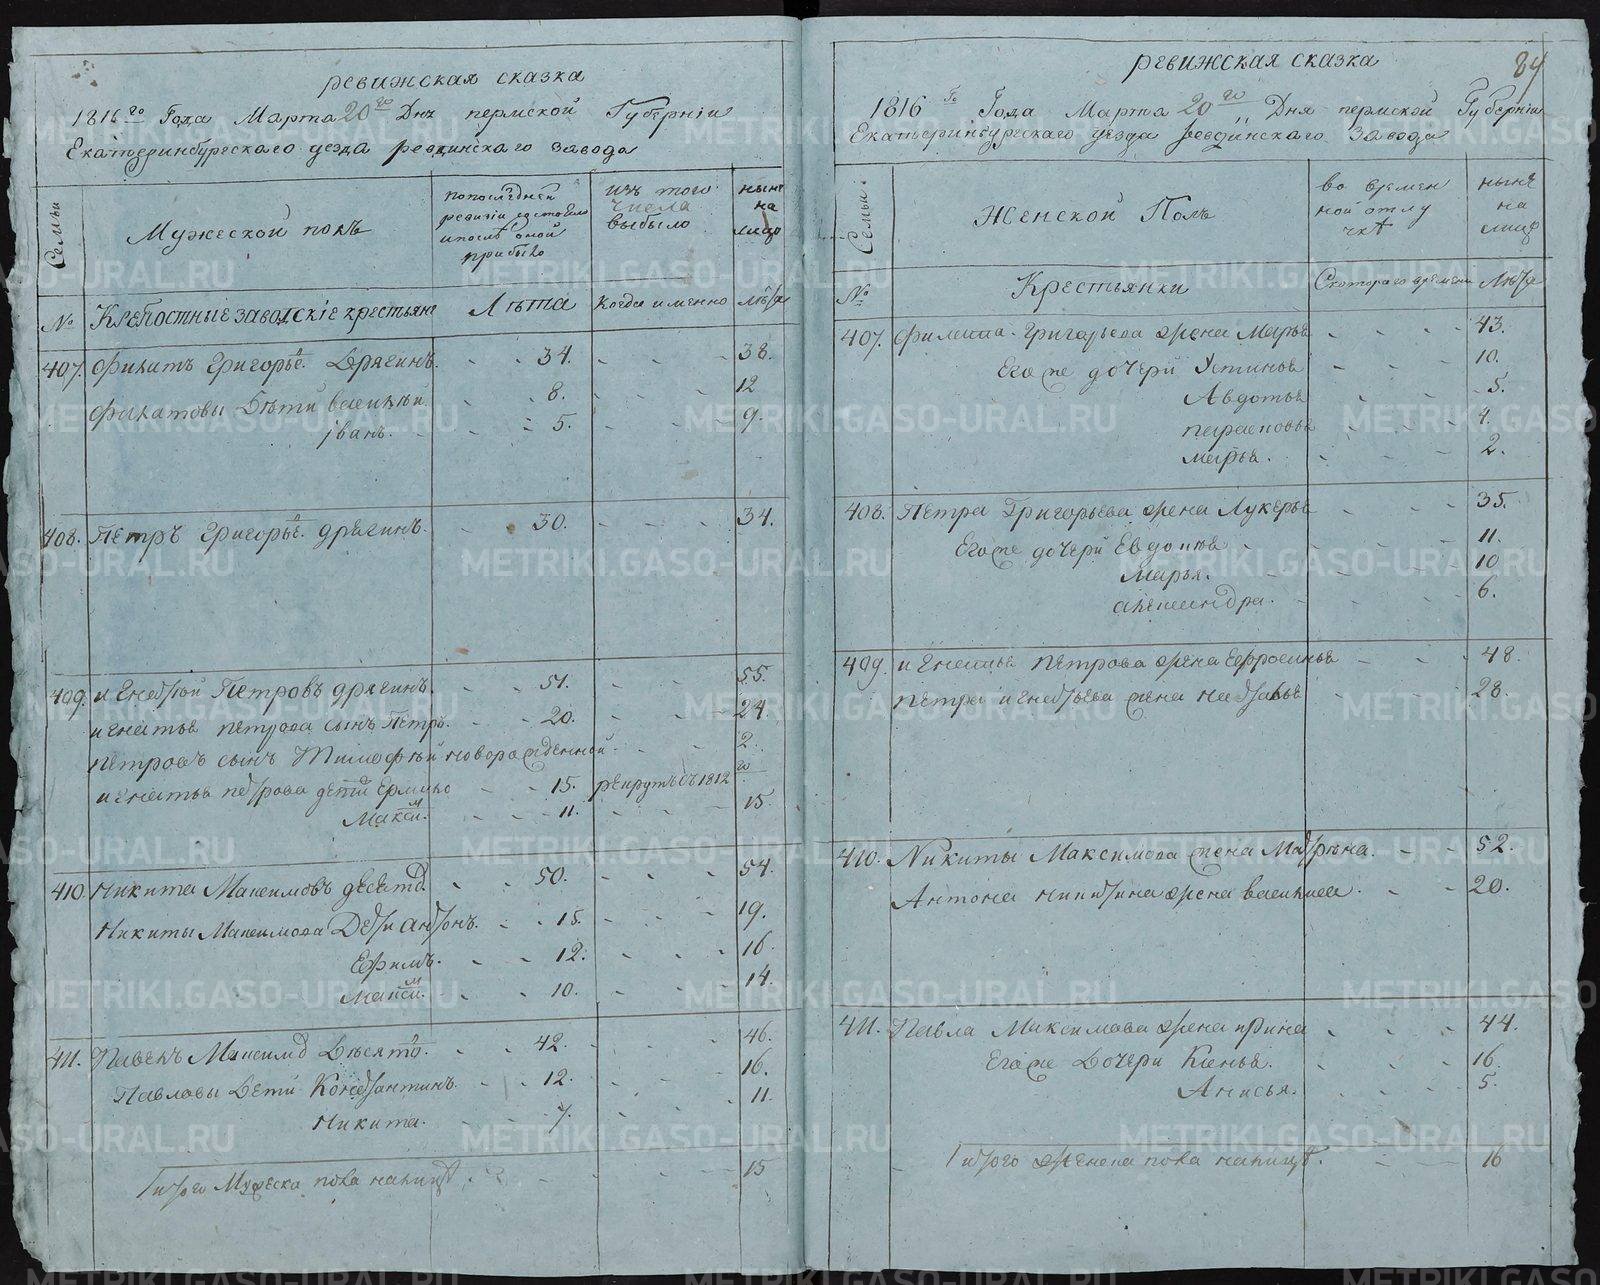 ревижская сказка
1816 го Года Марта 20 го Дня пермской Губерніи
Екатеринбургскаго уезда ревдинскаго завода
Семьи
Мужеской полъ
попоследней ревизіи состояло ипосле оной прибыло
изъ того числа выбыло
ныне на лицо
№
Крепостние заводскіе крестьяне
Лета
Когда именно
лета
407. Филатъ Григорье. Дрягинъ. 34. 38.
Филатовы Дети василей. 8. 12
іванъ. 5. 9.
408. Петръ Григорье. дрягинъ. 30. 34.
409. игнатей Петровъ дрягинъ. 51. 55.
игнатья петрова сынъ Петръ. 20. 24.
петровъ сынъ Тимофей новорожденной. 2.
игнатья петрова дети Ермило 15. рекрутъ въ 1812 го
Макси м. 11. 15.
410. Никита Максимовъ десято. 50. 54.
Никиты Максимова Дети антонъ. 15. 19.
Ефимъ. 12. 16.
макси м. 10. 14.
411. Павелъ Максимо Десято. 42. 46.
Павловы Дети Константинъ. 12. 16.
Никита. 7. 11.
Итого Мужеска пола налицо. 15
84
ревижская сказка
1816 го Года Марта 20 го Дня пермской Губерніи
Екатеринбургскаго уезда ревдинскаго Завода
Семьи.
Женской Полъ
во времен ной отлу чке
ныне на лицо
№
Крестьянки
Скотораго времени
Лета
407. Филата Григорьева жена Марья 43.
Егоже дочери Устинья 10.
Авдотья 5.
парасковья 4.
марья. 2.
408. Петра Григорьева жена Лукерья 35.
Егоже дочери Евдокия 11.
Марья. 10
александра. 6.
409. игнатья петрова жена Ефросинья 48.
петра игнатьева жена настасья 28.
410. Никиты Максимова жена Матрена. 52.
Антона никитина жена василиса. 20.
411. Павла Максимова жена ирина 44.
Егоже Дочери Ксенья. 16.
Анисья. 5.
Итого женска пола налицо. 16
METRIKI.GASO-URAL.RU